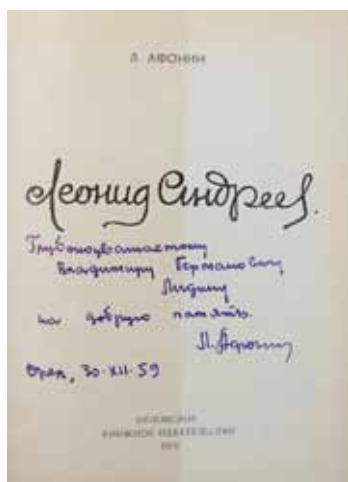 Л. АФОНИН
Леонид Андреев.
Глубокоуважаемому
Владимиру Германовичу
Лидину
на добрую память.
Л. Афонин
Орел, 30-XII-59
ОРЛОВСКОЕ
КНИЖНОЕ ИЗДАТЕЛЬСТВО
1959